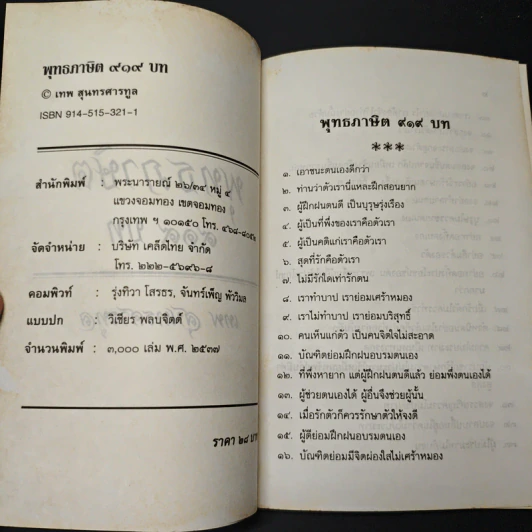 พุทธภาษิต ๙๑๙ บท
© เทพ สุนทรศารทูล
ISBN 914-515-321-1
สำนักพิมพ์ : พระนารายณ์ ๒๖/๓๔ หมู่ ๔
แขวงจอมทอง เขตจอมทอง
กรุงเทพ ฯ ๑๐๑๕๐ โทร.
จัดจำหน่าย : บริษัท เคล็ดไทย จำกัด
โทร. ๒๒๒-๕๖๙๖-๘
คอมพิวท์ : รุ่งทิวา โสรธร, จันทร์เพ็ญ พัวิมล
แบบปก : วิเชียร พลบจิตต์
จำนวนพิมพ์ : ๓,๐๐๐ เล่ม พ.ศ. ๒๕๓๗
ราคา ๒๘ บาท
พุทธภาษิต ๙๑๙ บท
***
๑. เอาชนะตนเองดีกว่า
๒. ท่านว่าตัวเรานี่แหละฝึกสอนยาก
๓. ผู้ฝึกฝนตนดี เป็นบุรุษรุ่งเรือง
๔. ผู้เป็นที่พึ่งของเราคือตัวเรา
๕. ผู้เป็นคติแก่เราคือตัวเรา
๖. สุดที่รักคือตัวเรา
๗. ไม่มีรักใดเท่ารักตน
๘. เราทำบาป เราย่อมเศร้าหมอง
๙. เราไม่ทำบาป เราย่อมบริสุทธิ์
๑๐. คนเห็นแก่ตัว เป็นคนจิตใจไม่สะอาด
๑๑. บัณฑิตย่อมฝึกฝนอบรมตนเอง
๑๒. ที่พึ่งหายาก แต่ผู้ฝึกฝนตนดีแล้ว ย่อมพึ่งตนเองได้
๑๓. ผู้ช่วยตนเองได้ ผู้อื่นจึงช่วยผู้นั้น
๑๔. เมื่อรักตัวก็ควรรักษาตัวให้จงดี
๑๕. ผู้ดีย่อมฝึกฝนอบรมตนเอง
๑๖. บัณฑิตย่อมมีจิตผ่องใสไม่เศร้าหมอง